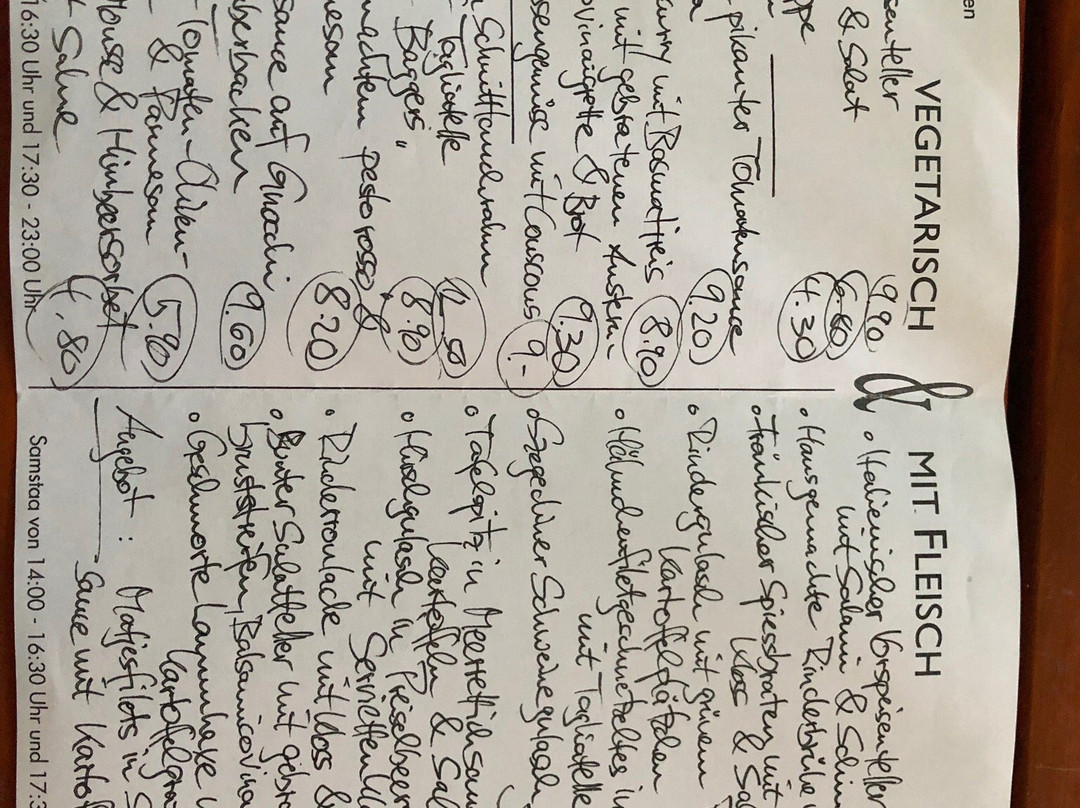 en
VEGETARISCH & MIT FLEISCH
senteller 9.90
& Salat
6.80
ppe 4.30
pikanter Tomatensauce 9.20
curry mit Basmatireis 8.90
mit gebratenen Austern-
ovinaigrette & Brot 9.30
ssengemüse mit Couscous 9.-
Schnittlauchrahm
Tagliatelle
"Baggers" 8.90
machten pesto rosso &
mesan 8.20
sauce auf Gnocchi
berbacken 9.60
Tomaten-Oliven-
& Parmesan 5.90
Mouse & Himbeersorbet
Sahne 4.80
16:30 Uhr und 17:30 - 23:00 Uhr
• Italienischer Vorspeisenteller
mit Salami & Schin
• Hausgemachte Rinderbrühe
• Fränkischer Spiessbraten mit
Kloss & Sal
• Rindergulasch mit grünen
Kartoffelplätzchen
• Hähnchenfiletgeschnetzeltes in
mit Tagliatelle
• Szegediner Schweinegulasch
• Tafelspitz in Meerrettichsau
kartoffeln & Sal
• Hirschgulasch in Preiselbeer
mit Serviettenkl
• Rinderroulade mit Kloss &
• Bunter Salatteller mit gebra
bruststreifen, Balsamicovina
• Geschmorte Lammhaxe
Kartoffelgra
Angebot: Matjesfilets in S
sauce mit Kartof
Samstag von 14:00 - 16:30 Uhr und 17:3